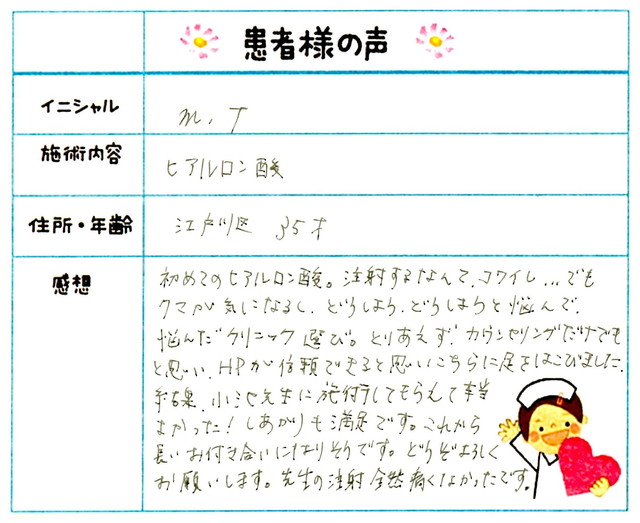 患者様の声
イニシャル M.T
施術内容 ヒアルロン酸
住所・年齢 江戸川区 35才
感想
初めてのヒアルロン酸。注射するなんて、コワイし...でも
クマが気になるし、どうしよう、どうしようと悩んで、
悩んだクリニック選び。とりあえず、カウンセリングだけでも
と思い、HPが信頼できると思いこちらに足をはこびました。
結果、小池先生に施術してもらえて本当
よかった!しあがりも満足です。これから
長いお付き合いになりそうです。どうぞよろしく
お願いします。先生の注射全然痛くなかったです。